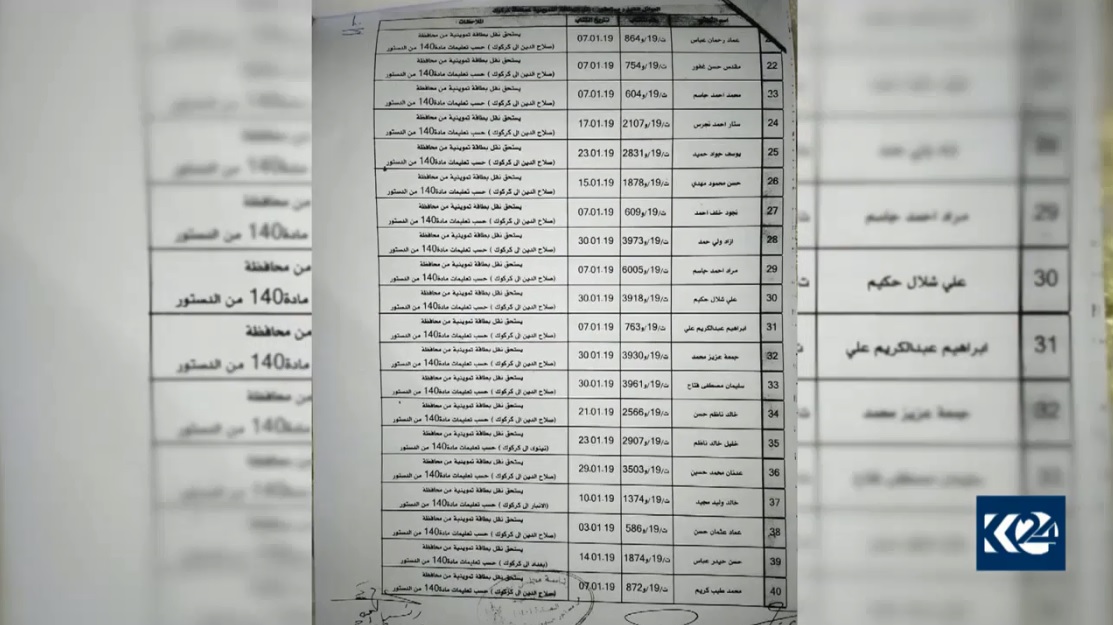 عماد رحمان عباس ت/19/و864 07.01.19 يستحق نقل بطاقة تموينية من محافظة
(صلاح الدين الى كركوك ) حسب تعليمات مادة140 من الدستور
22 مقدس حسن غفور ت/19/و754 07.01.19 يستحق نقل بطاقة تموينية من محافظة
(صلاح الدين الى كركوك ) حسب تعليمات مادة140 من الدستور
23 محمد احمد جاسم ت/19/و604 07.01.19 يستحق نقل بطاقة تموينية من محافظة
(صلاح الدين الى كركوك ) حسب تعليمات مادة140 من الدستور
24 ستار احمد نجرس ت/19/و2107 17.01.19 يستحق نقل بطاقة تموينية من محافظة
(صلاح الدين الى كركوك ) حسب تعليمات مادة140 من الدستور
25 يوسف جواد حميد ت/19/و2831 23.01.19 يستحق نقل بطاقة تموينية من محافظة
(صلاح الدين الى كركوك ) حسب تعليمات مادة140 من الدستور
26 حسن محمود مهدي ت/19/و1878 15.01.19 يستحق نقل بطاقة تموينية من محافظة
(صلاح الدين الى كركوك ) حسب تعليمات مادة140 من الدستور
27 نجود خلف احمد ت/19/و609 07.01.19 يستحق نقل بطاقة تموينية من محافظة
(صلاح الدين الى كركوك ) حسب تعليمات مادة140 من الدستور
28 ازاد ولي حمد ت/19/و3973 30.01.19 يستحق نقل بطاقة تموينية من محافظة
(صلاح الدين الى كركوك ) حسب تعليمات مادة140 من الدستور
29 مراد احمد جاسم ت/19/و6005 07.01.19 يستحق نقل بطاقة تموينية من محافظة
(صلاح الدين الى كركوك ) حسب تعليمات مادة140 من الدستور
30 علي شلال حكيم ت/19/و3918 30.01.19 يستحق نقل بطاقة تموينية من محافظة
(صلاح الدين الى كركوك ) حسب تعليمات مادة140 من الدستور
31 ابراهيم عبدالكريم علي ت/19/و763 07.01.19 يستحق نقل بطاقة تموينية من محافظة
(صلاح الدين الى كركوك ) حسب تعليمات مادة140 من الدستور
32 جمعة عزيز محمد ت/19/و3930 30.01.19 يستحق نقل بطاقة تموينية من محافظة
(صلاح الدين الى كركوك ) حسب تعليمات مادة140 من الدستور
33 سليمان مصطفى فتاح ت/19/و3961 30.01.19 يستحق نقل بطاقة تموينية من محافظة
(صلاح الدين الى كركوك ) حسب تعليمات مادة140 من الدستور
34 خالد ناظم حسن ت/19/و2566 21.01.19 يستحق نقل بطاقة تموينية من محافظة
(صلاح الدين الى كركوك ) حسب تعليمات مادة140 من الدستور
35 خليل خالد ناظم ت/19/و2907 23.01.19 يستحق نقل بطاقة تموينية من محافظة
(نينوى الى كركوك ) حسب تعليمات مادة140 من الدستور
36 عدنان محمد حسين ت/19/و3503 29.01.19 يستحق نقل بطاقة تموينية من محافظة
(صلاح الدين الى كركوك ) حسب تعليمات مادة140 من الدستور
37 خالد وليد مجيد ت/19/و1374 10.01.19 يستحق نقل بطاقة تموينية من محافظة
(الانبار الى كركوك ) حسب تعليمات مادة140 من الدستور
38 عماد عثمان حسن ت/19/و586 03.01.19 يستحق نقل بطاقة تموينية من محافظة
(صلاح الدين الى كركوك ) حسب تعليمات مادة140 من الدستور
39 حسن حيدر عباس ت/19/و1874 14.01.19 يستحق نقل بطاقة تموينية من محافظة
(بغداد الى كركوك ) حسب تعليمات مادة140 من الدستور
40 محمد طيب كريم ت/19/و872 07.01.19 يستحق نقل بطاقة تموينية من محافظة
(صلاح الدين الى كركوك ) حسب تعليمات مادة140 من الدستور
K24